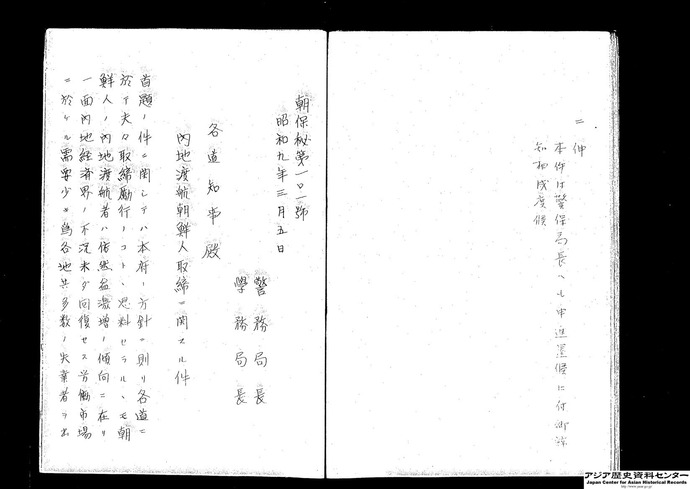 二伸
本件ハ警保局長ヘモ申進置候ニ付御諒
知相成度候
朝保秘第一〇一號
昭和九年三月五日
警務局長
學務局長
各道知事殿
內地渡航朝鮮人取締ニ関スル件
首題ノ件ニ関シテハ本府ノ方針ニ則リ各道ニ
於テ夫々取締勵行ノコトヽ思料セラルヽモ朝
鮮人ノ內地渡航者ハ依然益激增ノ傾向ニ在リ
一面內地経済界ノ不況未ダ回復セス労働市場
ニ於ケル需要少キ為各地共多数ノ失業者ヲ出
アジア歴史資料センター
Japan Center for Asian Historical Records
http://www.jacar.go.jp/